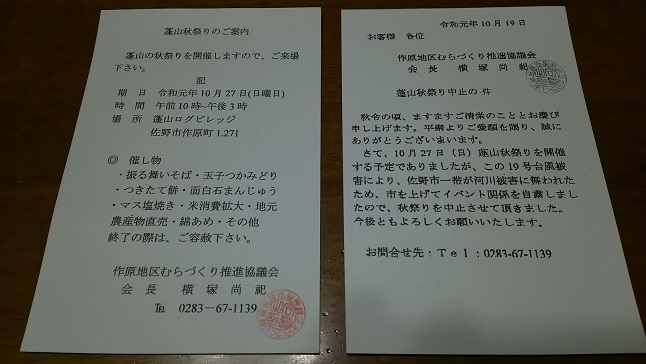 蓬山秋祭りのご案内
蓬山の秋祭りを開催しますので、ご来場
下さい。
記
期 日 令和元年10月27日(日曜日)
時 間 午前10時~午後3時
場 所 蓬山ログビレッジ
佐野市作原町1.271
◎ 催し物
・振る舞いそば・玉子つかみどり
・つきたて餅・面白石まんじゅう
・マス塩焼き・米消費拡大・地元
農産物直売・綿あめ・その他
終了の際は、ご容赦下さい。
作原地区むらづくり推進協議会
会 長 横 塚 尚 祀
℡ 0283-67-1139
令和元年10月19日
お客様 各位
作原地区むらづくり推進協議会
会 長 横 塚 尚 祀
蓬山秋祭り中止の件
秋令の頃、ますますご清栄のこととお慶び
申し上げます。平素よりご愛顧を賜り、誠に
ありがとうございまいます。
さて、10月27日(日)蓬山秋祭りを開催
する予定でありましたが、この19号台風被
害により、佐野市一帯が河川被害に舞われた
ため、市を上げてイベント関係を自粛しまし
たので、秋祭りを中止させて頂きました。
今後ともよろしくお願いいたします。
お問合せ先:Tel:0283-67-1139